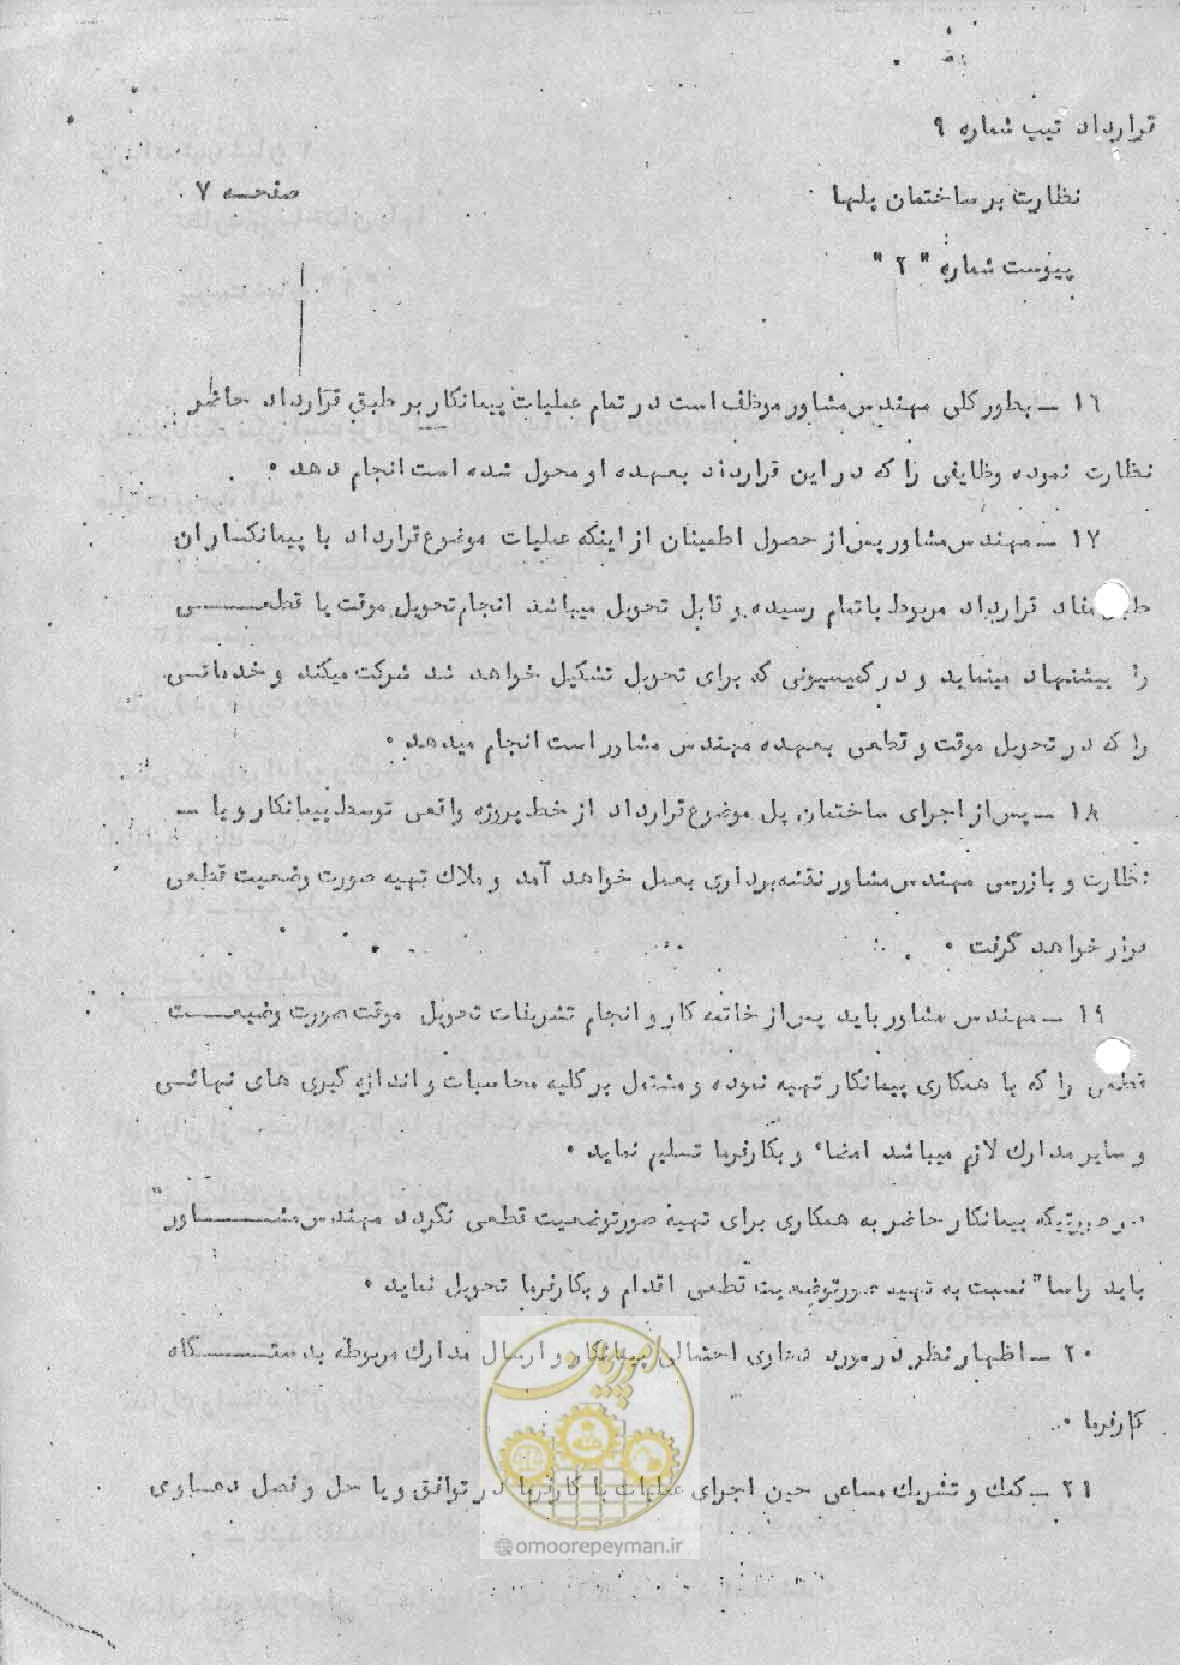 قرارداد تیپ شماره ۹
نظارت بر ساختمان پلها
صفحه ۷
پیوست شماره " ۲ "
۱۶ ــ بطور کلی مهندس مشاور موظف است در تمام عملیات پیمانکار بر طبق قرارداد حاضر
نظارت نموده وظایفی را که در این قرارداد بعهده او محول شده است انجام دهد .
۱۷ ــ مهندس مشاور پس از حصول اطمینان از اینکه عملیات موضوع قرارداد با پیمانکاران
قرارداد مربوط باتمام رسیده و قابل تحویل میباشد انجام تحویل موقت یا قطعــــــی
را پیشنهاد مینماید و در کمیسیونی که برای تحویل تشکیل خواهد شد شرکت میکند و خدماتی
را که در تحویل موقت و قطعی بعهده مهندس مشاور است انجام میدهد .
۱۸ ــ پس از اجرای ساختمان پل موضوع قرارداد از خط پروژه واقعی توسط پیمانکار و با ــ
نظارت و بازرسی مهندس مشاور نقشه برداری بعمل خواهد آمد و ملاك تهیه صورت وضعیت قطعی
قرار خواهد گرفت .
۱۹ ــ مهندس مشاور باید پس از خاتمه کار و انجام تشریفات تحویل موقت صورت وضعیــــت
قطعی را که با همکاری پیمانکار تهیه نموده و مشتمل بر کلیه محاسبات و اندازه گیری های نهائــی
و سایر مدارك لازم میباشد امضاء و بکارفرما تسلیم نماید .
در صورتیکه پیمانکار حاضر به همکاری برای تهیه صورتوضعیت قطعی نگردد مهندس مشــــــاور
باید راسا" نسبت به تهیه صورتوضعیت قطعی اقدام و بکارفرما تحویل نماید .
۲۰ ــ اظهار نظر در مورد دعاوی احتمالی پیمانکار و ارسال مدارك مربوطه به دستــــــگاه
کارفرما .
۲۱ ــ کمك و تشریك مساعی حین اجرای عملیات با کارفرما در توافق و یا حل و فصل دعاوی
امورپیمان
@omoorepeyman.ir